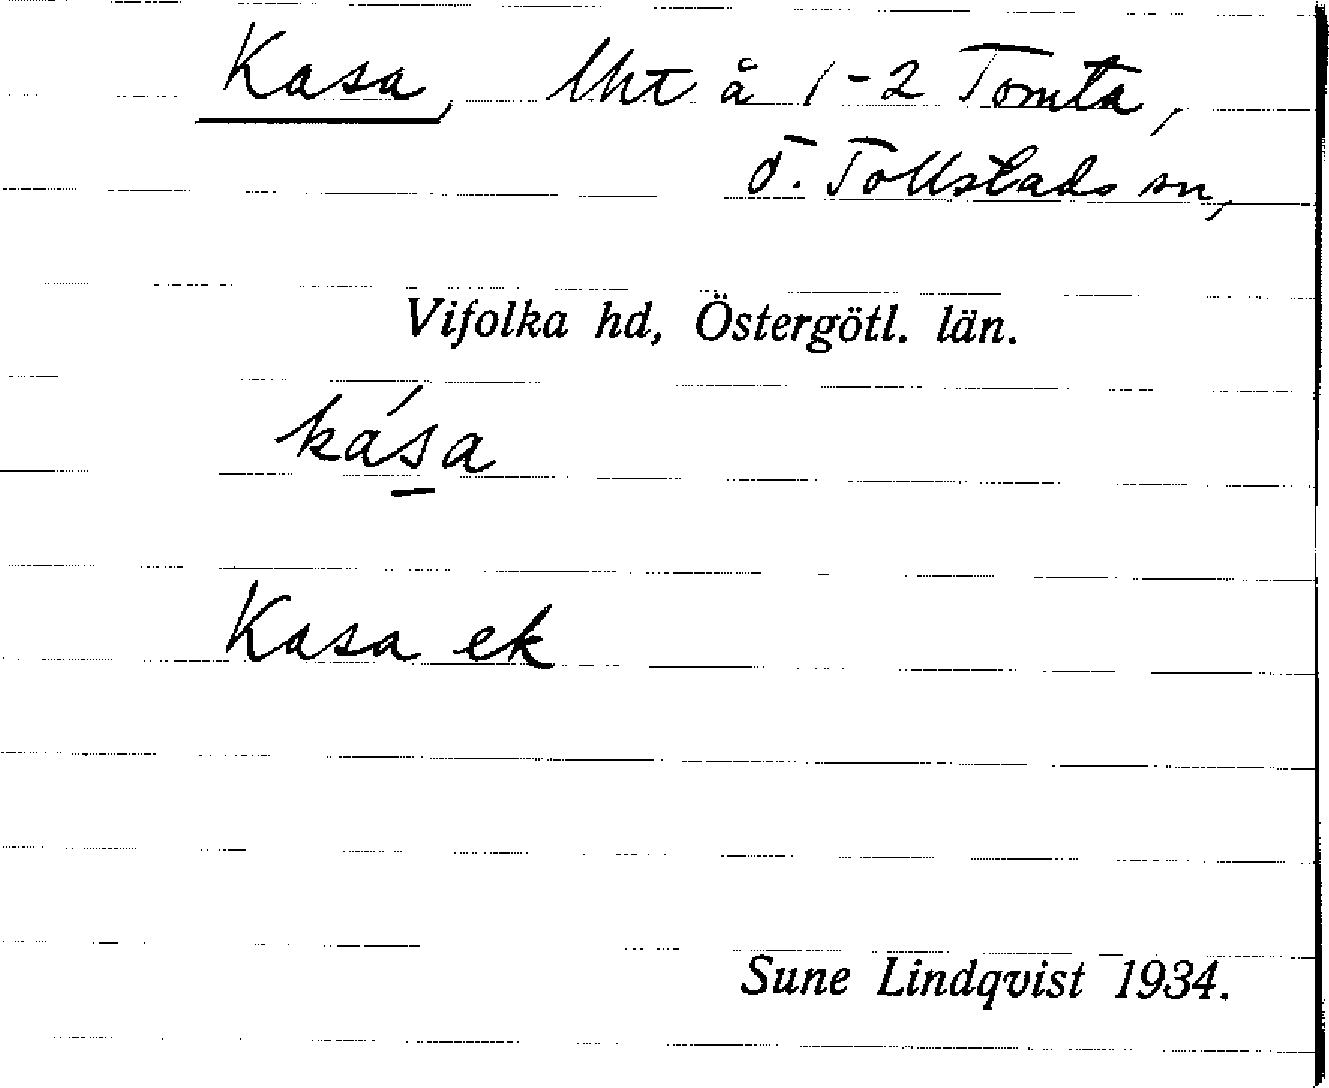 Kasa, lht å 1-2 Tomta,
Ö. Tollstads sn,
Vifolka hd, Östergötl. län.
ká̱sa
Kasa ek
Sune Lindqvist 1934.